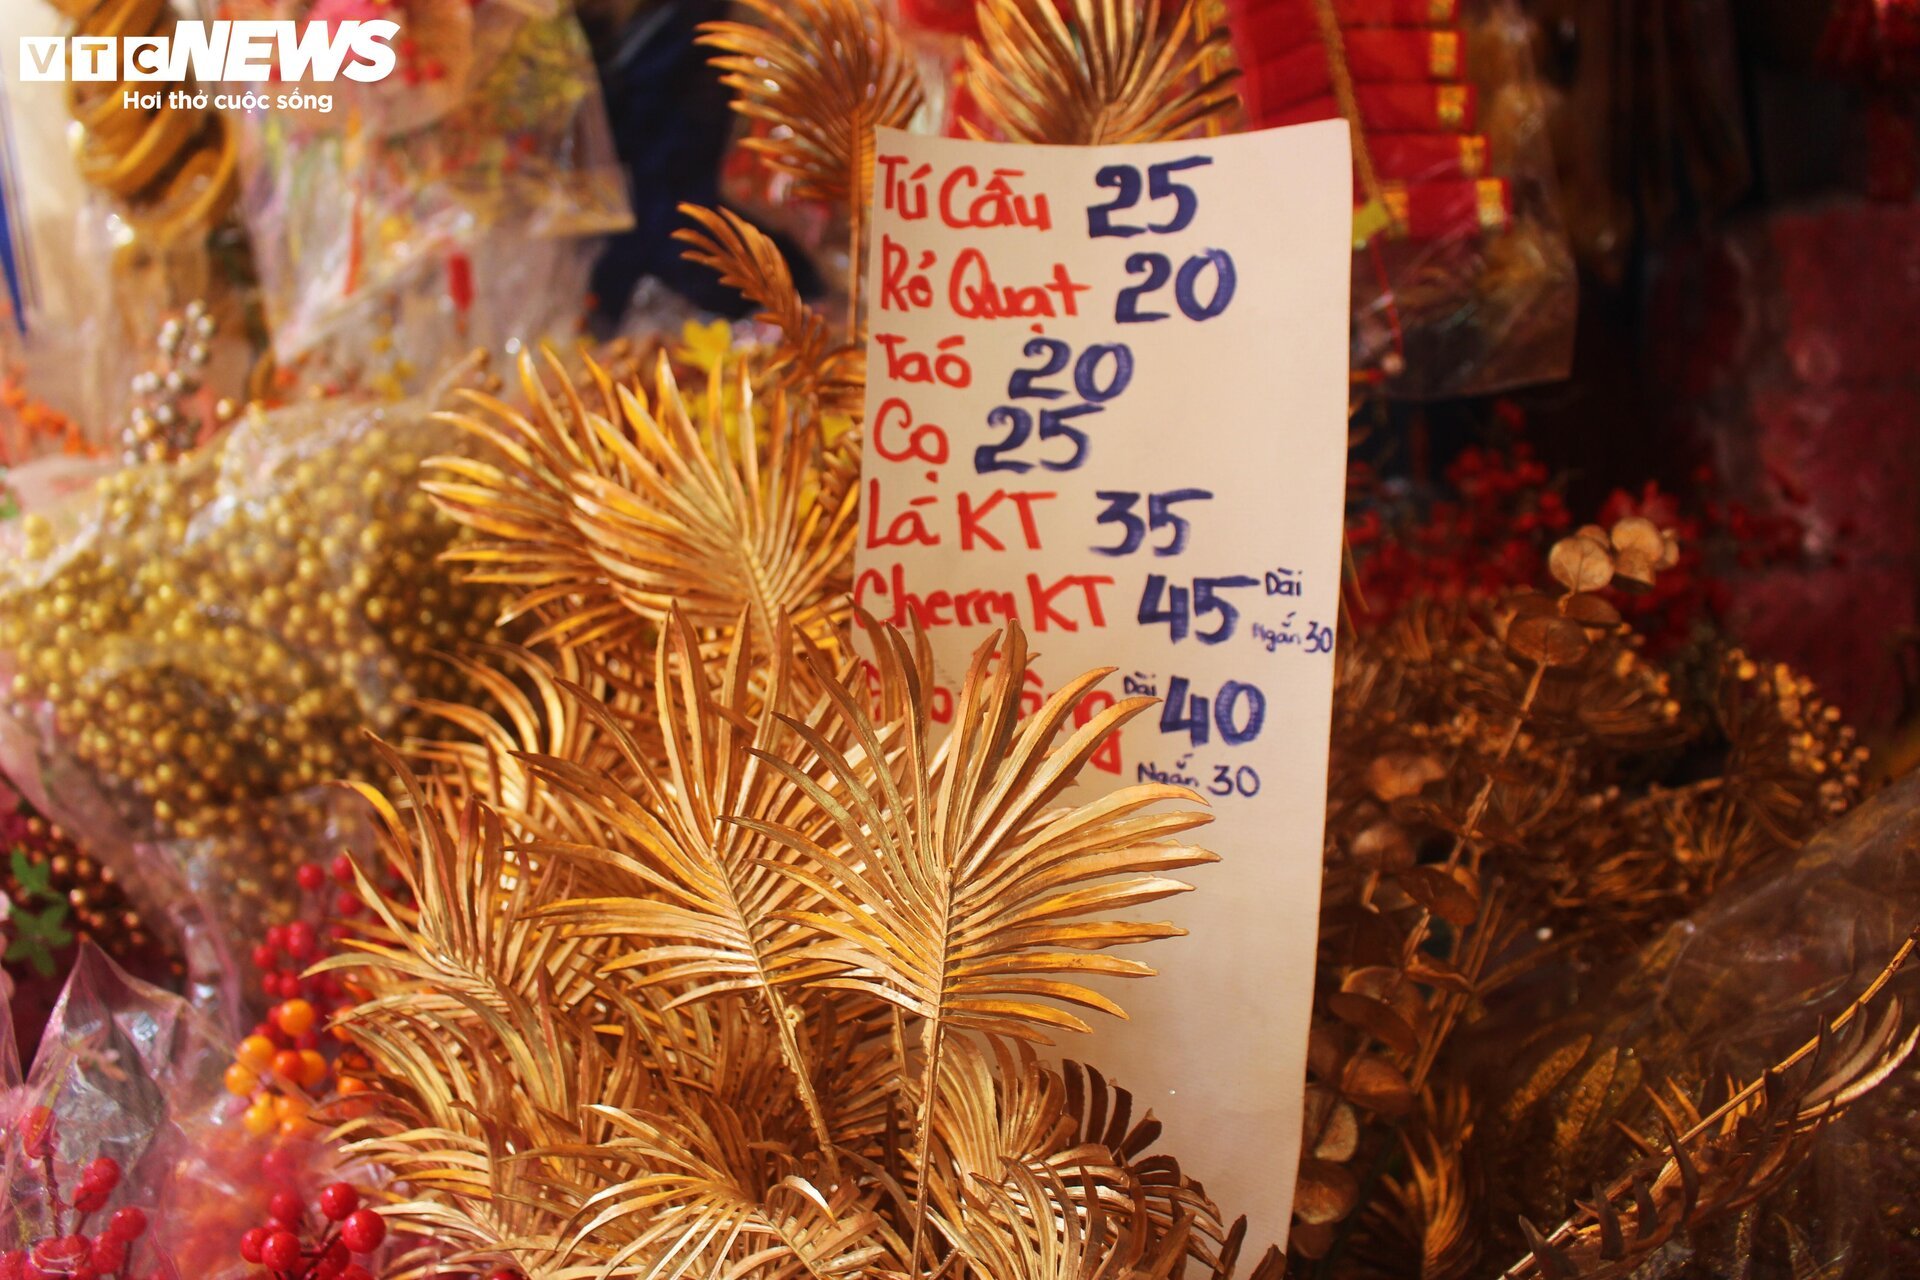 VTC NEWS
Hơi thở cuộc sống
Tú Cầu 25
Rỏ Quạt 20
Taó 20
Cọ 25
Lá KT 35
Cherry KT 45 Dài
Ngắn 30
Dài 40
Ngắn 30